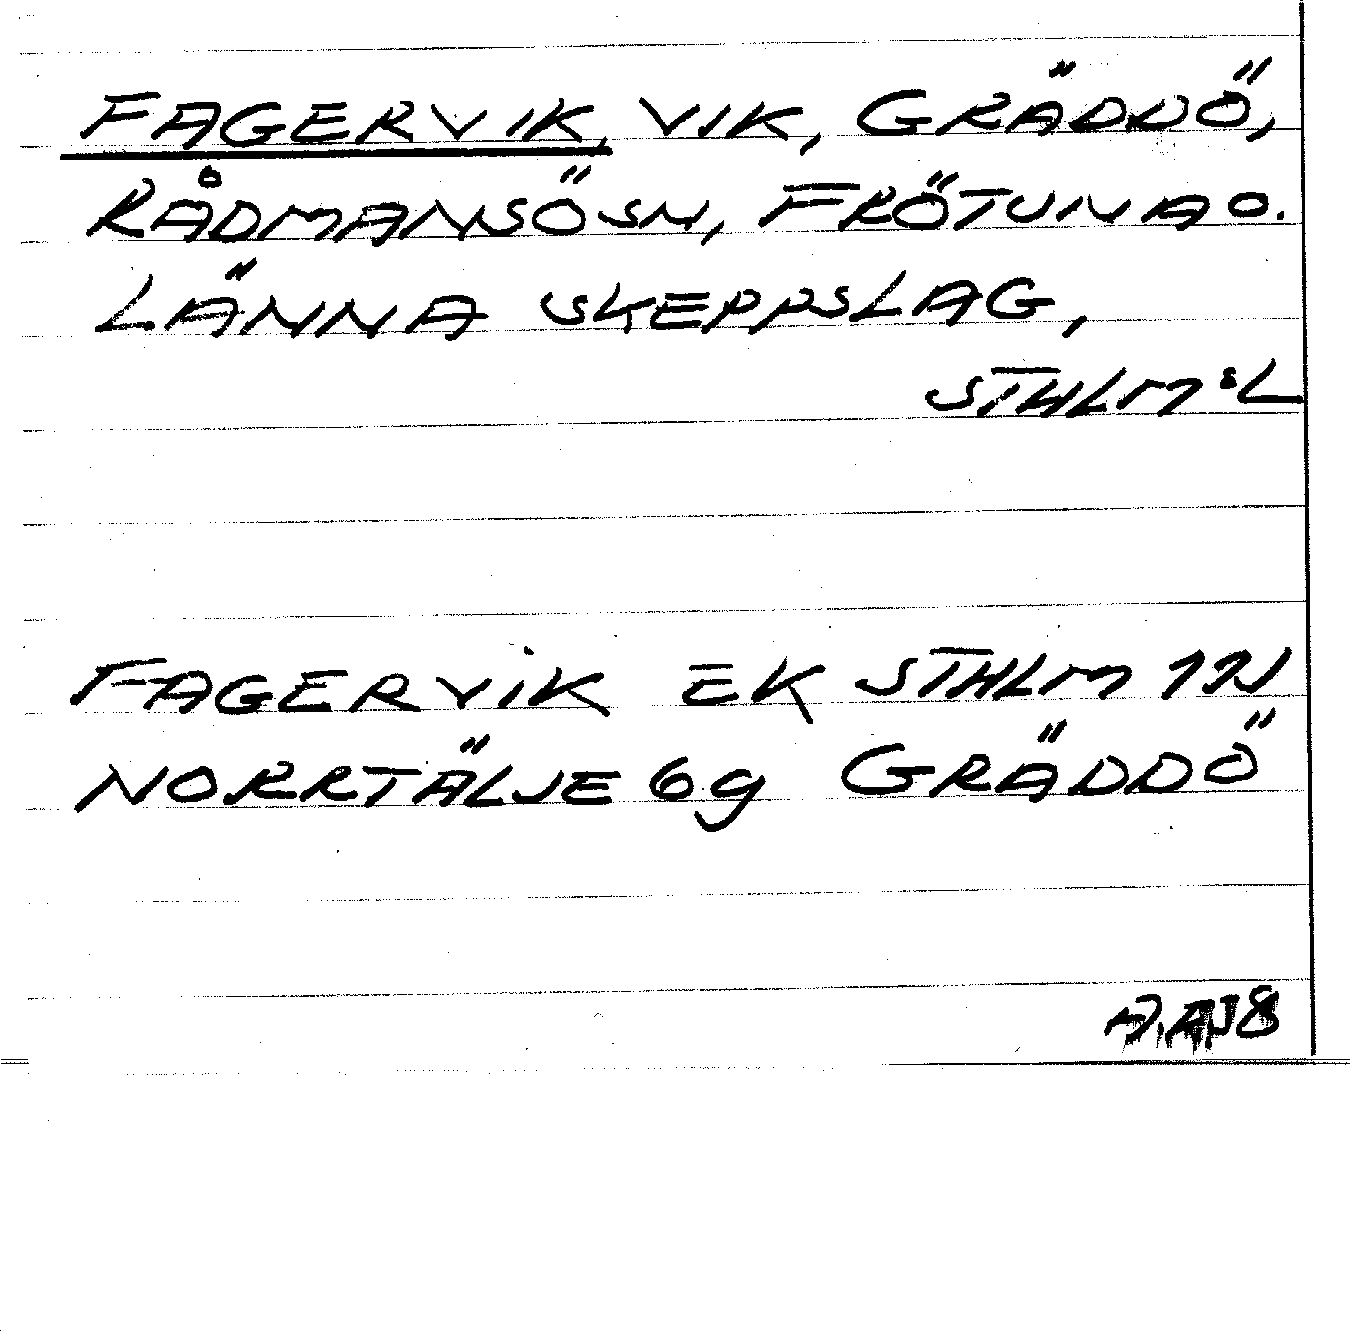 FAGERVIK, VIK, GRÄDDÖ,
RÅDMANSÖ SN, FRÖTUNA O.
LÄNNA SKEPPSLAG,
STHLM:S L
FAGERVIK EK STHLM 11N
NORRTÄLJE 6g GRÄDDÖ